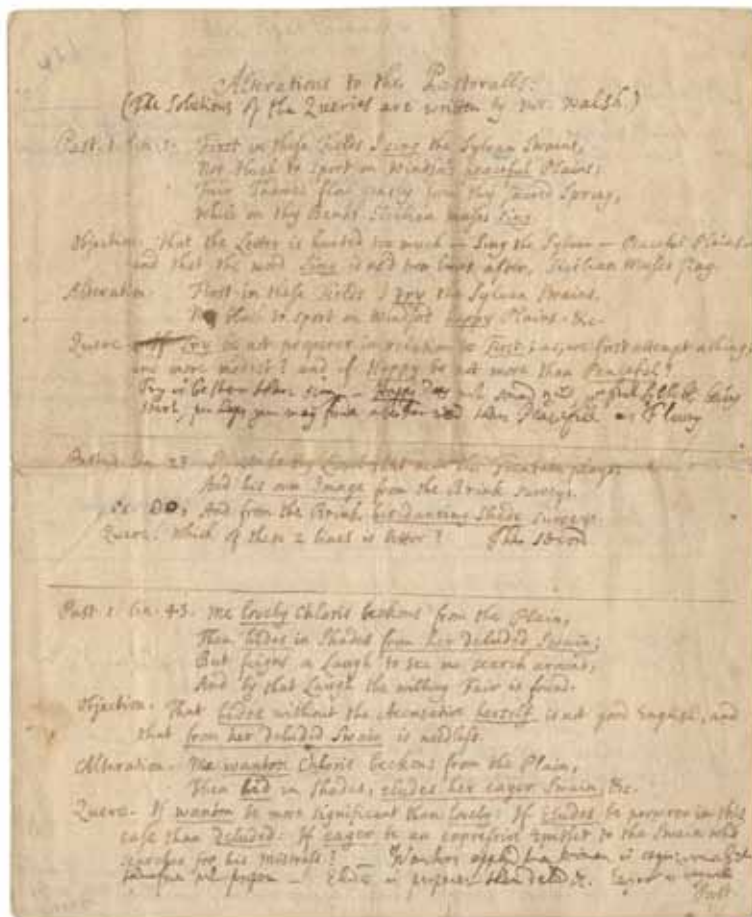 Alterations to the Pastoralls.
(The Solutions of the Queries are written by Mr. Walsh.)
Past. 1. lin. 1. First in these Fields I sing the Sylvan Swains,
Nor blush to sport on Windsor's peaceful Plains;
Fair Thames flow gently from thy sacred Spring,
While on thy Banks Sicilian Muses sing.
Objection. That the Letter is hunted too much — Sing the Sylvan — Peaceful Plains —
and that the word Sing is us'd two lines after, Sicilian Muses sing.
Alteration. First in these Fields I try the Sylvan Strains,
Nor blush to sport on Windsor's happy Plains. &c.
Quere. If Try be not properer in relation to First; as, we first attempt a thing;
and more modest? and if Happy be not more than Peaceful?
Try is better than sing — Happy does not
perhaps you may find a better word than Peaceful as Flowry
Past. 1. lin. 23.
And his own Image from the Brink surveys.
And from the Brink his dancing Shade surveys.
Quere. Which of these 2 lines is better? The second
Past. 1. lin. 43. Me lovely Chloris beckons from the Plain,
Then hides in Shades from her deluded Swain;
But feigns a Laugh to see me search around,
And by that Laugh the willing Fair is found.
Objection. That hides without the Accusative herself is not good English, and
that from her deluded Swain is needless.
Alteration. Me wanton Chloris beckons from the Plain,
Then hid in Shades, eludes her eager Swain, &c.
Quere. If wanton be more significant than lovely: If Eludes be properer in this
case than Deluded: If eager be an expressive Epithet to the Swain who
searches for his Mistress? Wanton apply'd to a woman is
Eludes is properer than deluded. Eager
Past.